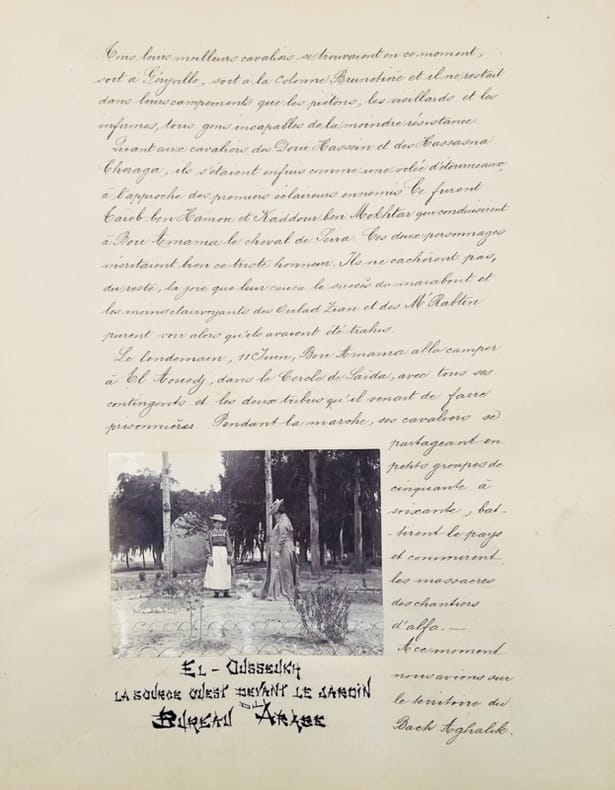 Tous leurs meilleurs cavaliers se trouvaient en ce moment,
soit à Géryville, soit à la Colonne Brunetière et il ne restait
dans leurs campements que les piétons, les vieillards et les
infirmes, tous gens incapables de la moindre résistance.
Quant aux cavaliers des Doui Hassein et des Hassasna
Cheraga, ils s'étaient enfuis comme une volée d'étourneaux
à l'approche des premiers éclaireurs ennemis. Ce furent
ben Hamou et Kaddour ben Mokhtar qui conduisirent
à Bou Amama le cheval de. Ces deux personnages
méritaient bien ce triste honneur. Ils ne cachèrent pas,
du reste, la joie que leur causa le succès du marabout et
les moins clairvoyants des Oulad Zian et des M'Rabtin
purent voir alors qu'ils avaient été trahis.
Le lendemain, 11 Juin, Bou Amama alla camper
à El Aouedj, dans le Cercle de Saïda, avec tous ses
contingents et les deux tribus qu'il venait de faire
prisonnières. Pendant la marche, ses cavaliers se
partageant en
petits groupes de
cinquante à
soixante, bat-
-tirent le pays
et commirent
les massacres
des chantiers
d'alfa. —
A ce moment
nous avions sur
le territoire du
Bach Aghalik.
EL-OUSSEUKH
LA SOURCE OUEST DEVANT LE JARDIN
DU
BUREAU ARABE